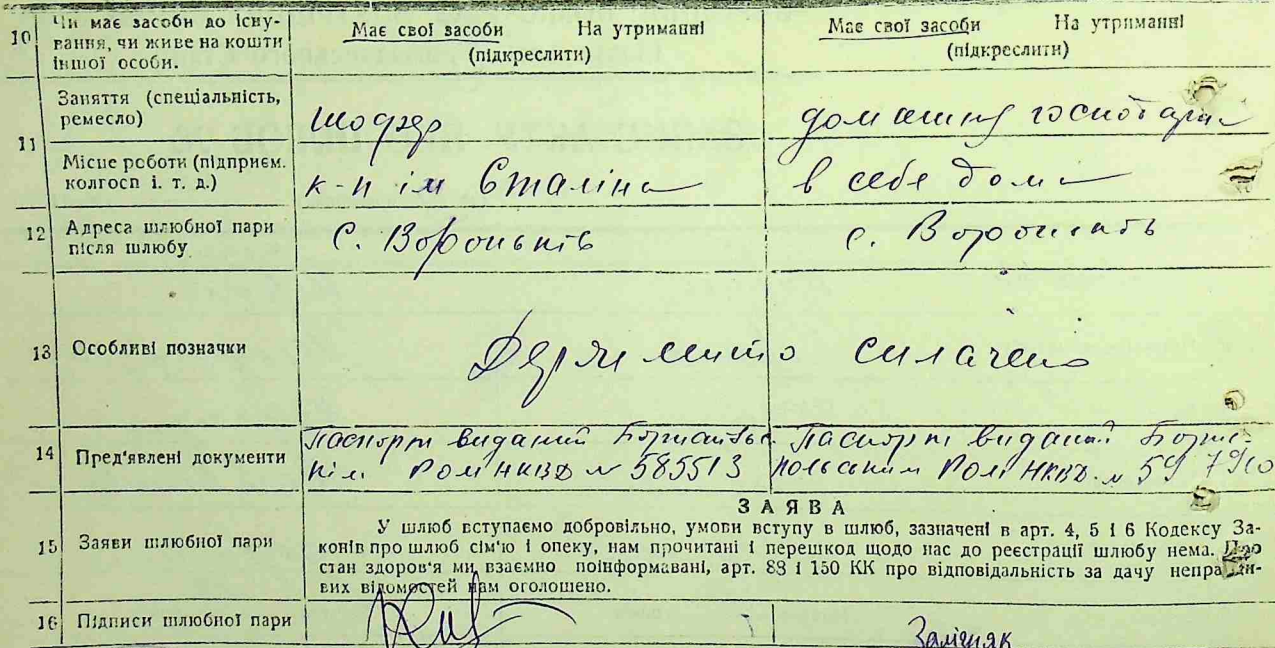 10 Чи має засоби до існу-
вання, чи живе на кошти
іншої особи.
Має свої засоби На утриманні
(підкреслити)
Має свої засоби На утриманні
(підкреслити)
11 Заняття (спеціальність,
ремесло)
шофер
домашнє господарст
Місце роботи (підприєм.
колгосп і. т. д.)
к-п ім Сталіна
в себе дома
12 Адреса шлюбної пари
після шлюбу
с. Вороньків
с. Вороньків
13 Особливі позначки
Держмито сплачено
14 Пред'явлені документи
Паспорт виданий
РОМ НКВД № 585513
Паспорт виданий Бориспольським РОМ НКВД № 597910
З А Я В А
15 Заяви шлюбної пари
У шлюб вступаємо добровільно, умови вступу в шлюб, зазначені в арт. 4, 5 і 6 Кодексу За-
конів про шлюб сім'ю і опеку, нам прочитані і перешкод щодо нас до реєстрації шлюбу нема. Про
стан здоров'я ми взаємно поінформавані, арт. 88 і 150 КК про відповідальність за дачу неправди-
вих відомостей нам оголошено.
16 Підписи шлюбної пари
Залізняк